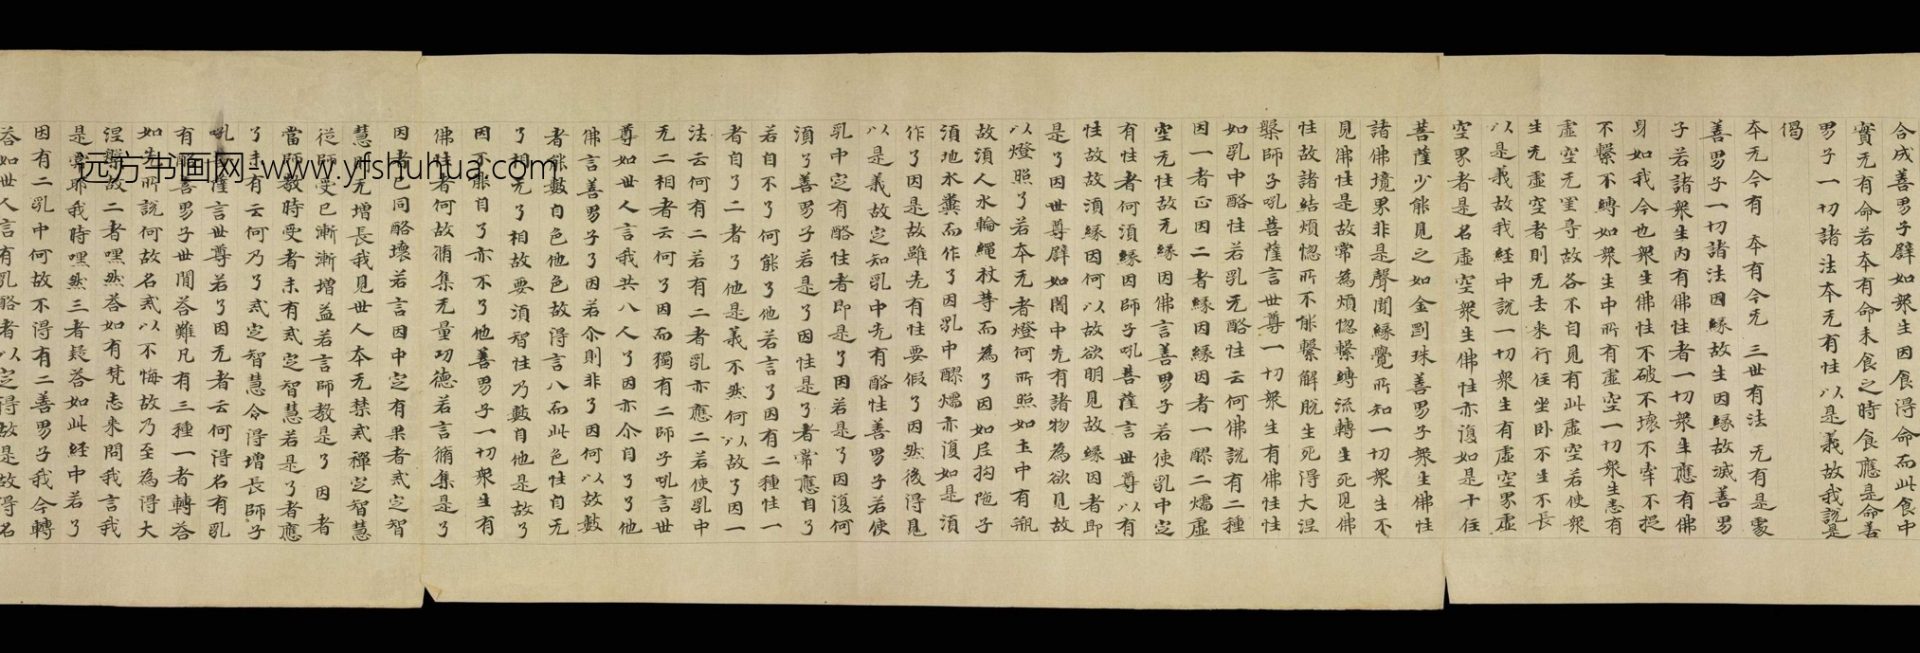 合成善男子譬如衆生因食得命而此食中
實无有命若本有命未食之時食應是命善
男子一切諸法本无有性以是義故我說是
偈
本无今有 本有今无 三世有法 无有是處
善男子一切諸法因緣故生因緣故滅善男
子若諸衆生內有佛性者一切衆生應有佛
身如我今也衆生佛性不破不壞不牽不捉
不繫不縛如衆生中所有虛空一切衆生悉有
虛空无罣㝵故各不自見有此虛空若使衆
生无虛空者則无去來行住坐卧不生不長
以是義故我經中說一切衆生有虛空界虛
空界者是名虛空衆生佛性亦復如是十住
菩薩少能見之如金剛珠善男子衆生佛性
諸佛境界非是聲聞緣覺所知一切衆生不
見佛性是故常為煩惱繫縛流轉生死見佛
性故諸結煩惱所不能繫解脫生死得大涅
槃師子吼菩薩言世尊一切衆生有佛性性
如乳中酪性若乳无酪性云何佛說有二種
因一者正因二者緣因緣因者一醪二煗虛
空无性故无緣因佛言善男子若使乳中定
有性者何須緣因師子吼菩薩言世尊以有
性故故須緣因何以故欲明見故緣因者即
是了因世尊譬如闇中先有諸物為欲見故
以燈照了若本无者燈何所照如土中有瓶
故須人水輪繩杖等而為了因如尼拘陁子
須地水糞而作了因乳中醪煗亦復如是須
作了因是故雖先有性要假了因然後得見
以是義故定知乳中先有酪性善男子若使
乳中定有酪性者即是了因若是了因復何
須了善男子若是了因性是了者常應自了
若自不了何能了他若言了因有二種性一
者自了二者了他是義不然何以故了因一
法云何有二若有二者乳亦應二若使乳中
无二相者云何了因而獨有二師子吼言世
尊如世人言我共八人了因亦尒自了了他
佛言善男子了因若尒則非了因何以故數
者能數自色他色故得言八而此色性自无
了相无了相故要須智性乃數自他是故了
因不能自了亦不了他善男子一切衆生有
佛性者何故脩集无量功德若言脩集是了
因者已同酪壞若言因中定有果者戒定智
慧則无增長我見世人本无禁戒禪定智慧
從師受已漸漸增益若言師教是了因者
當師教時受者未有戒定智慧若是了者應
了未有云何乃了戒定智慧令得增長師子
吼菩薩言世尊若了因无者云何得名有乳
有酪善男子世間答難凡有三種一者轉答
如先所說何故名戒以不悔故乃至為得大
涅槃故二者嘿然答如有梵志來問我言我
是常耶我時嘿然三者疑答如此經中若了
因有二乳中何故不得有二善男子我今轉
答如世人言有乳酪者以定得故是故得名
远方书画网-www.yfshuhua.com